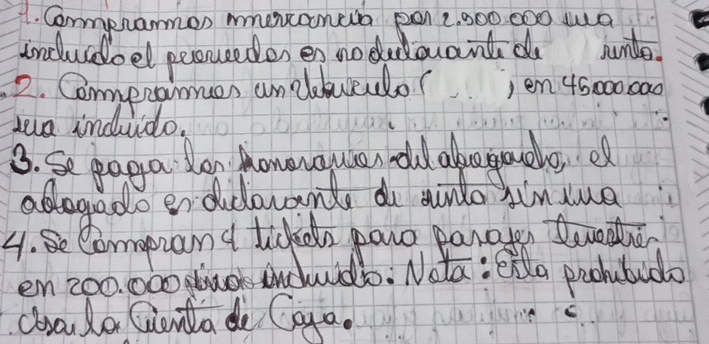 1. Compramos mercancia por 2.900.000 iva
incluido el proveedor es no declarante de renta.
2. Compramos un vehiculo ( ) en 45.000.000
iva incluido.
3. Se paga los honorarios del abogado, el
abogado es declarante de renta sin iva
4. Se Compran 4 tickets para pasajes terrestre
en 200.000 incluido: Nota: Esta prohibido
usar la Cuenta de Caja.